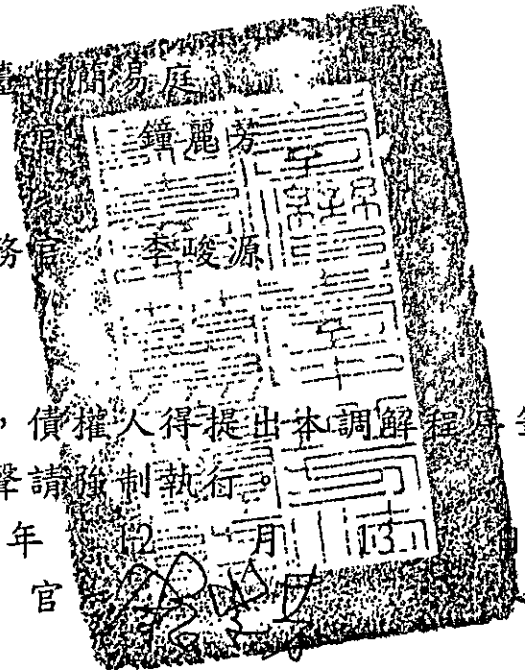 臺中簡易庭
官 鐘麗芳
務官 李峻源
,債權人得提出本調解程序筆
聲請強制執行。
年 12 月 13 日
官